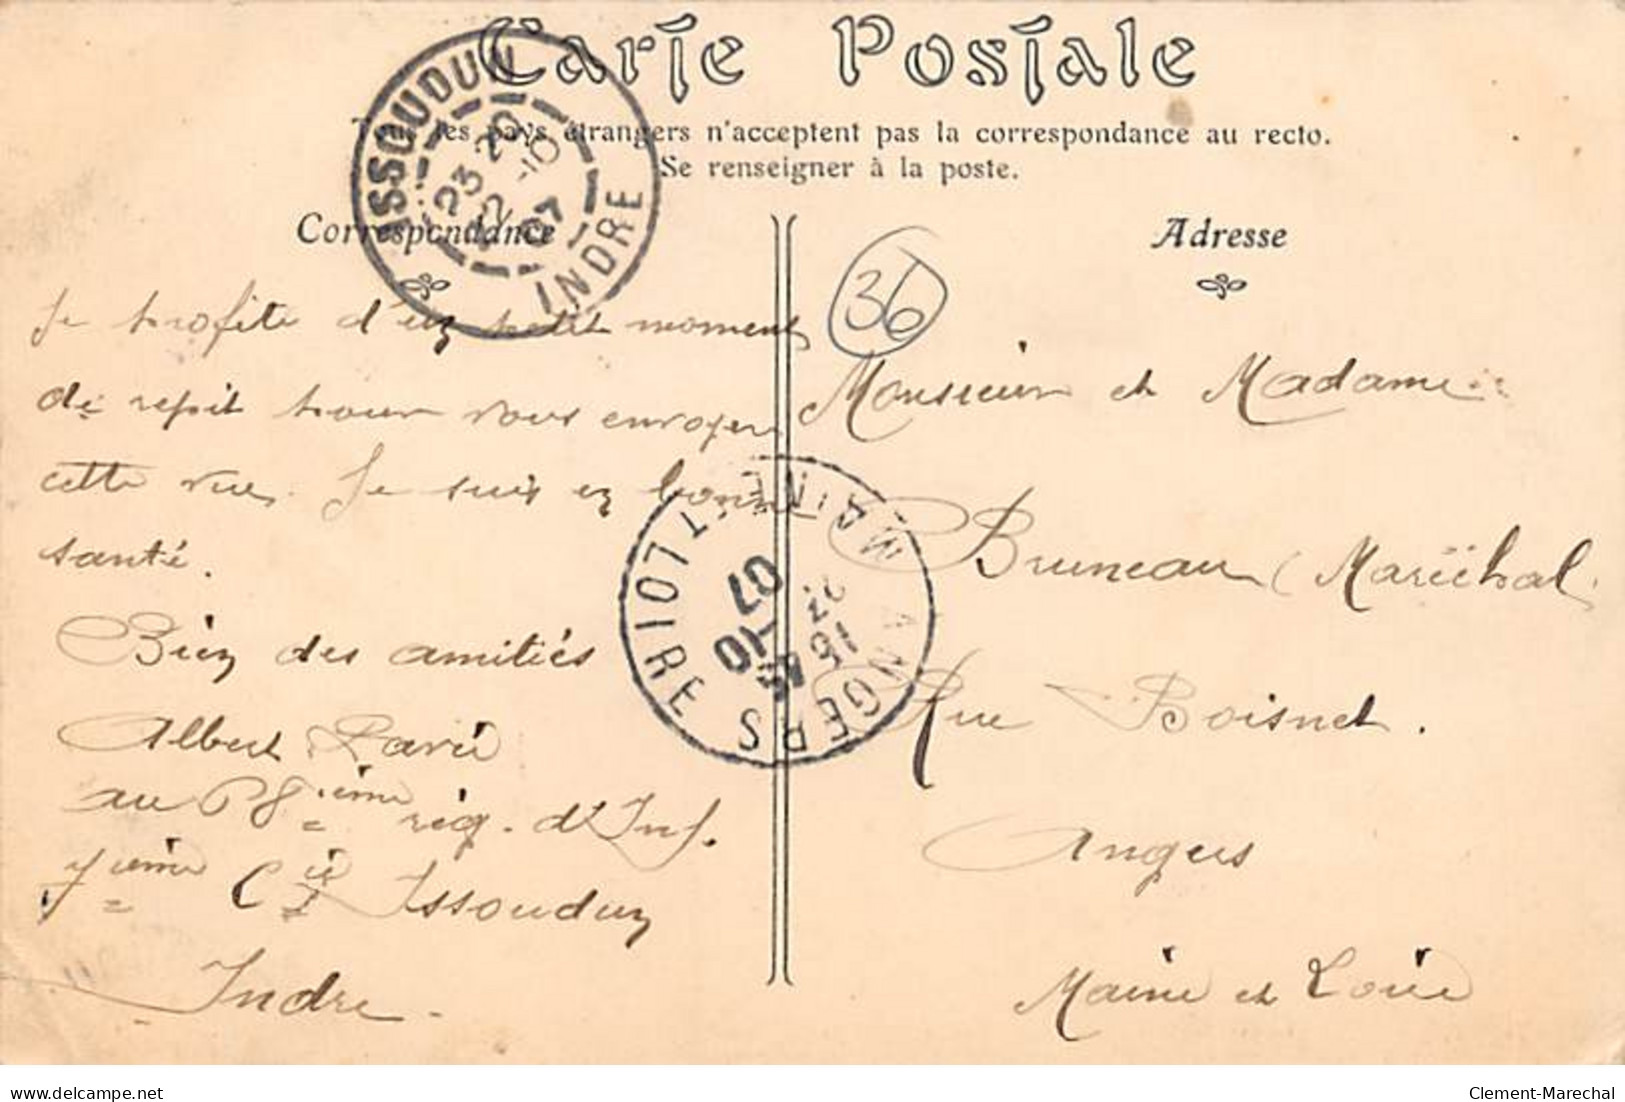 Carte Postale
Tous les pays étrangers n'acceptent pas la correspondance au recto.
Se renseigner à la poste.
ISSOUDUN
INDRE
Correspondance
Adresse
36
Je profite d'un petit moment
de repit pour vous envoyer
cette vue. Je suis en bonne
santé.
Bien des amitiés
Albert
au 68ième rég. d'Inf.
7ième Cie Issoudun
Indre.
Monsieur et Madame
Bruneau (Maréchal
Rue Boisnet.
Angers
Maine et Loire
ANGERS
MAINE-ET-LOIRE
07
delcampe.net
Clement-Marechal